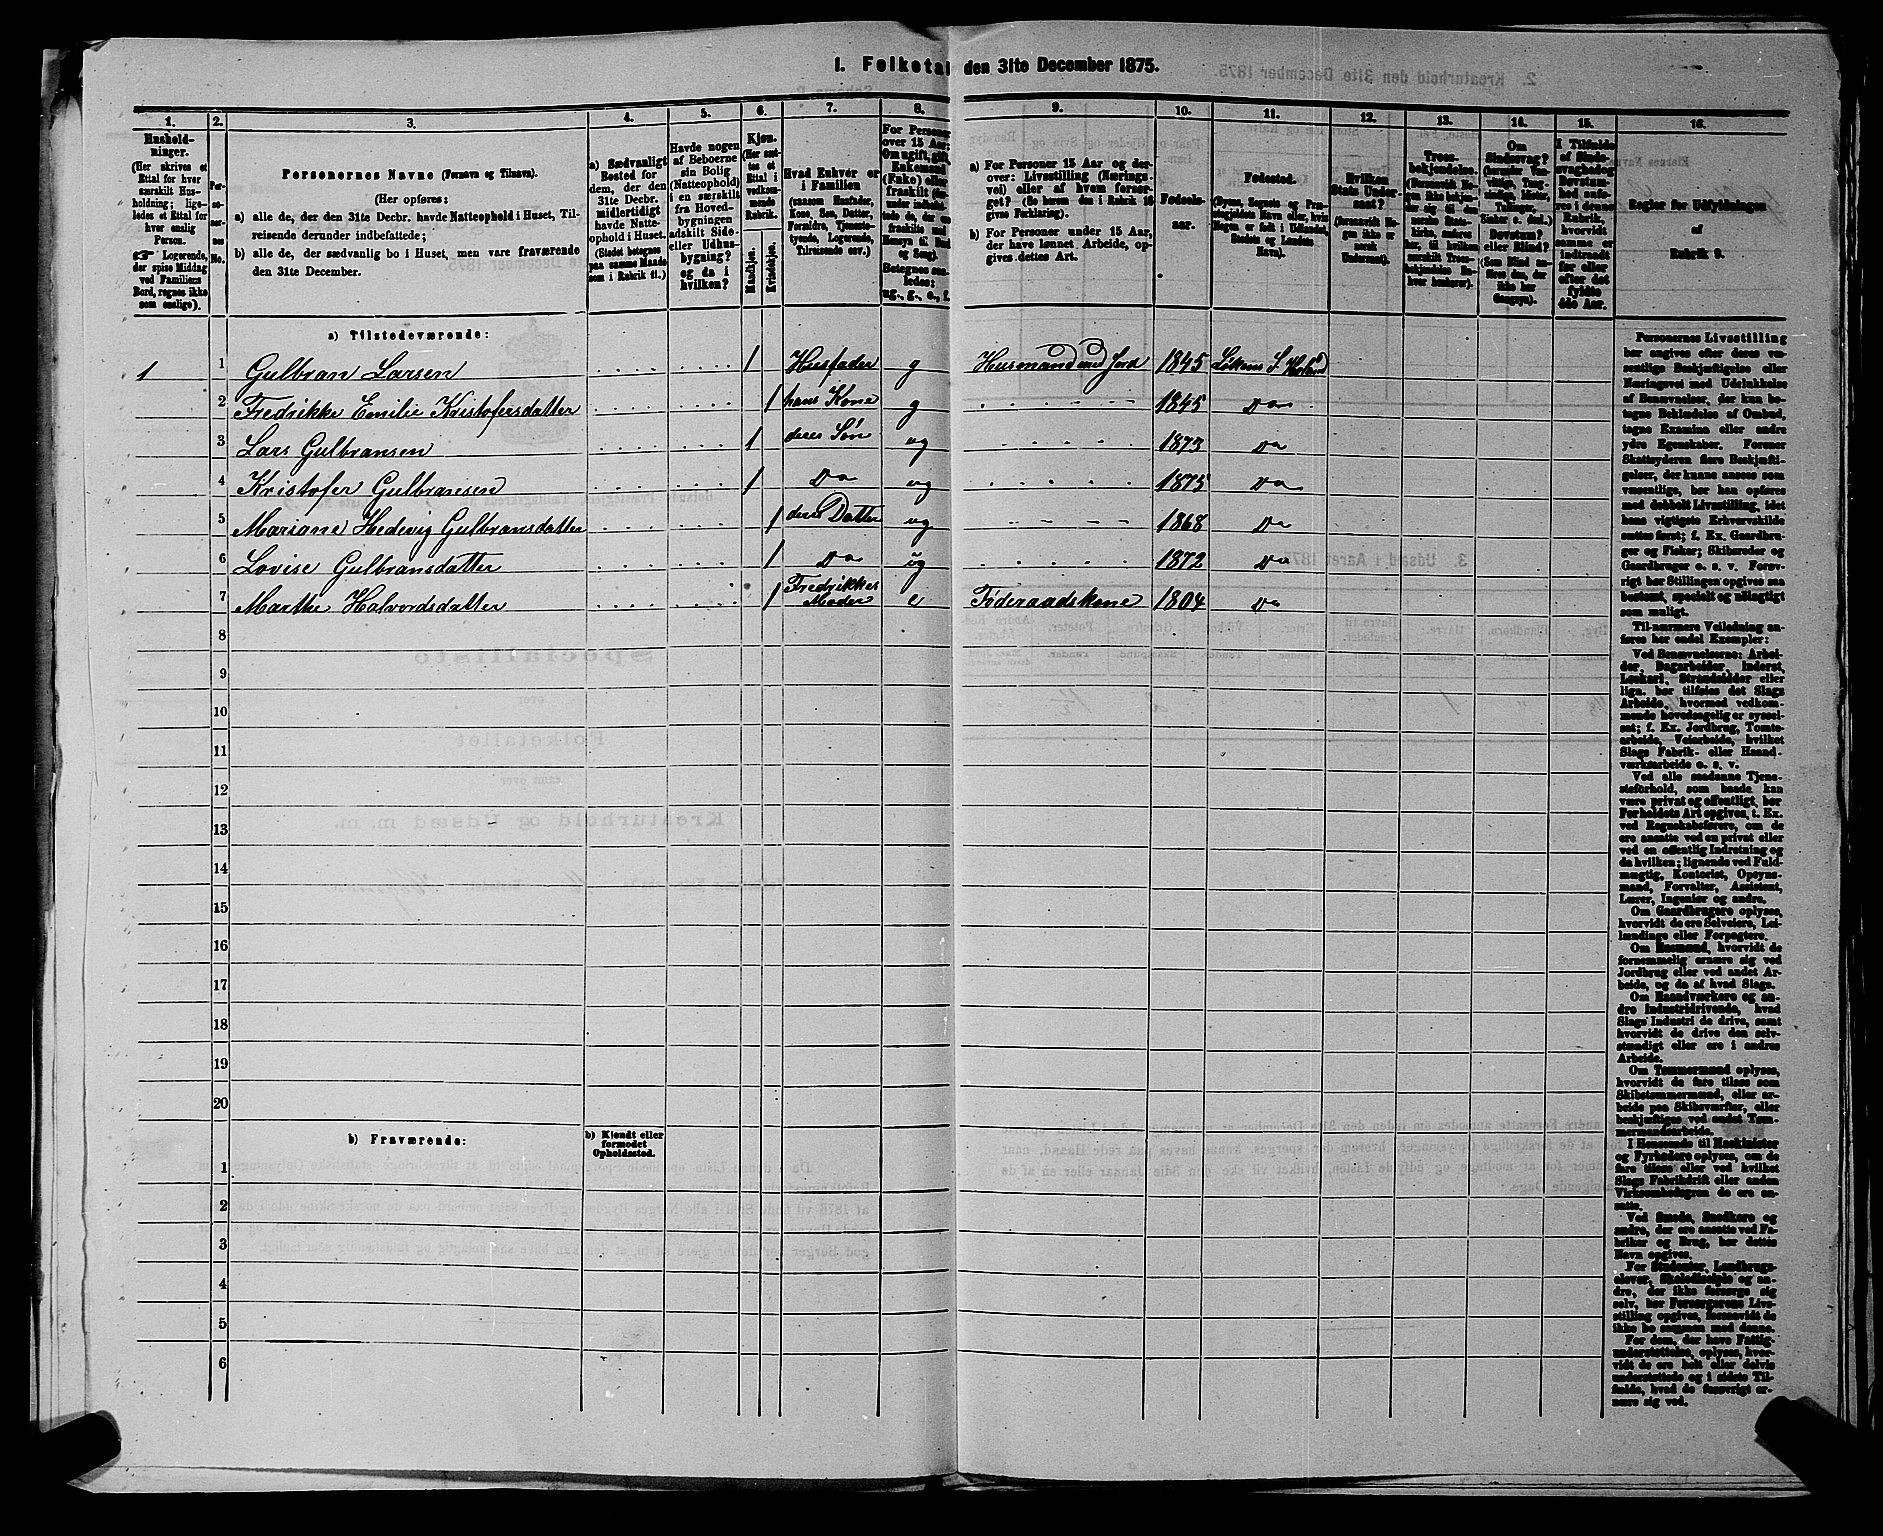 1. Folketal den 31te December 1875.
1.
2.
3.
4.
5.
6.
7.
8.
9.
10.
11.
12.
13.
14.
15.
16.
Hushold-
ninger.
(Her skrives et
Ettal for hver
særskilt Hus-
holdning; lige-
ledes et Ettal for
hver enslig
Person.
Logerende,
der spise Middag
ved Familiens
Bord, regnes ikke
som enslige).
Per-
so-
ner-
nes
No.
Personernes Navne (Fornavn og Tilnavn).
(Her opføres:
a) alle de, der den 31te Decbr. havde Natteophold i Huset, Til-
reisende derunder indbefattede;
b) alle de, der sædvanlig bo i Huset, men vare fraværende
den 31te December.
a) Sædvanligt
Bosted for
dem, der den
31te Decbr.
midlertidigt
havde Natte-
ophold i Huset.
(Stedet betegnes
paa samme Maade
som i Rubrik 11.)
Havde nogen
af Beboerne
sin Bolig
(Natteophold)
i en særskilt
fra Hoved-
bygningen
adskilt Side-
eller Udhus-
bygning?
og da i
hvilken?
Kjøn.
(Her sæt-
tes et
Ettal i
vedkom-
mende
Rubrik.
Mandkjøn.
Kvindekjøn.
Hvad Enhver er
i Familien
(saasom Husfader,
Kone, Søn, Datter,
Forældre, Tjeneste-
tyende, Logerende,
Tilreisende osv.)
For Personer
over 15 Aar:
Om ugift, gift,
Enkemand
(Enke) eller
fraskilt
Betegnes saa-
ledes:
ug., g., e., f.
a) For Personer 15 Aar og der-
over: Livsstilling (Nærings-
vei) eller af hvem forsør-
get? (Se herom den i Rubrik 16
givne Forklaring).
b) For Personer under 15 Aar,
der have lønnet Arbeide, op-
gives dettes Art.
Fødsels-
aar.
Fødested.
(Byens, Sognets og Præ-
stegjeldets Navn eller, hvis
Nogen er født i Udlandet,
Stedets og Landets
Navn).
Hvilken
Stats Under-
saat?
(forsaavidt No-
gen ikke er
norsk
Undersaat).
Troes-
bekjendelse.
Om
Sindssvag?
I Tilfælde
af Sinds-
svaghed
og
Døvstum-
hed anfø-
res i denne
Rubrik,
hvorvidt
samme er
indtraadt
før eller
efter det
fyldte
4de Aar.
Regler for Udfyldningen
af
Rubrik 9.
a) Tilstedeværende:
1 1 Gulbran Larsen 1 Husfader g Husmand med Jord 1845 Løkens S. Høland
2 Fredrikke Emilie Kristofersdatter 1 hans Kone g 1845 Do
3 Lars Gulbransen 1 deres Søn ug 1873 Do
4 Kristofer Gulbransen 1 Do ug 1875 Do
5 Mariane Hedevig Gulbransdatter 1 deres Datter ug 1868 Do
6 Lovise Gulbransdatter 1 Do ug 1872 Do
7 Marthe Halvordsdatter 1 Fredrikkes Moder e Føderaadskone 1804 Do
8
9
10
11
12
13
14
15
16
17
18
19
20
b) Fraværende:
b) Kjendt eller
formodet
Opholdssted.
1
2
3
4
5
6
Personernes Livsstilling
bør angives efter deres væ-
sentlige Beskjæftigelse eller
Næringsvei med Udelukkelse
af Benævnelser, der kun be-
tegne Beklædelse af Ombud,
tagne Examina eller andre
ydre Egenskaber. Forener
Skatteyderen flere Beskjæfti-
gelser, der kunne ansees som
væsentlige, bør han opføres
med dobbelt Livsstilling, idet
hans vigtigste Erhvervskilde
sættes først; f. Ex. Gaardbru-
ger og Fisker; Skibsreder og
Gaardbruger o. s. v. Forøv-
rigt bør Stillingen opgives saa
bestemt, specielt og nøiagtigt
som muligt.
Til nærmere Veiledning an-
føres her endel Exempler:
Ved Benævnelserne: Arbei-
der, Dagarbeider, Inderst,
Løskarl, Strandsidder eller
lign. bør tilføies det Slags
Arbeide, hvormed vedkom-
mende hovedsagelig er syssel-
sat; f. Ex. Jordbrug, Tomte-
arbeide, Veiarbeide, hvilket
Slags Fabrik- eller Haand-
værksarbeide o. s. v.
Ved alle saadanne Tjene-
steforhold, som baade kan
være privat og offentligt, bør
Forholdets Art opgives, t. Ex.
ved Regnskabsførere, om de
ere ansatte ved en privat eller
ved en offentlig Indretning og
da hvilken; lignende ved Fuld-
mægtig, Kontorist, Opsyns-
mand, Forvalter, Assistent,
Lærer, Ingeniør og andre.
Om Gaardbrugere oplyses,
hvorvidt de ere Selveiere, Lei-
lændinge eller Forpagtere.
Om Husmænd, hvorvidt de
fornemmelig ernære sig ved
Jordbrug eller ved andet Ar-
beide, og da af hvad Slags.
Om Haandværkere og an-
dre Industridrivende, hvad
Slags Industri de drive, samt
hvorvidt de drive den selv-
stændigt eller ere i andres
Arbeide.
Om Tømmermænd oplyses,
hvorvidt de fare tilsøs som
Skibstømmermænd, eller ar-
beide paa Skibsværfter, eller
beskjæftiges ved andet Tøm-
mermandsarbeide.
I Henseende til Maskinister
og Fyrbødere oplyses, om de
fare tilsøs eller ved hvilket
Slags Fabrikdrift eller anden
Virksomhedsgren de ere an-
satte.
Ved Smede, Snedkere og
andre, der ere ansatte ved Fa-
briker og Brug, bør dettes
Navn opgives.
For Studenter, Landbrugs-
elever, Skoledisciple og an-
dre, der ikke forsørge sig
selv, bør Forsørgerens Livs-
stilling opgives, forsaavidt de
ikke bo sammen med denne.
For dem, der have Fattig-
understøttelse, oplyses, hvor-
vidt de ere helt eller delvis
understøttede og i sidste Til-
fælde, hvad de forøvrigt er-
nære sig ved.